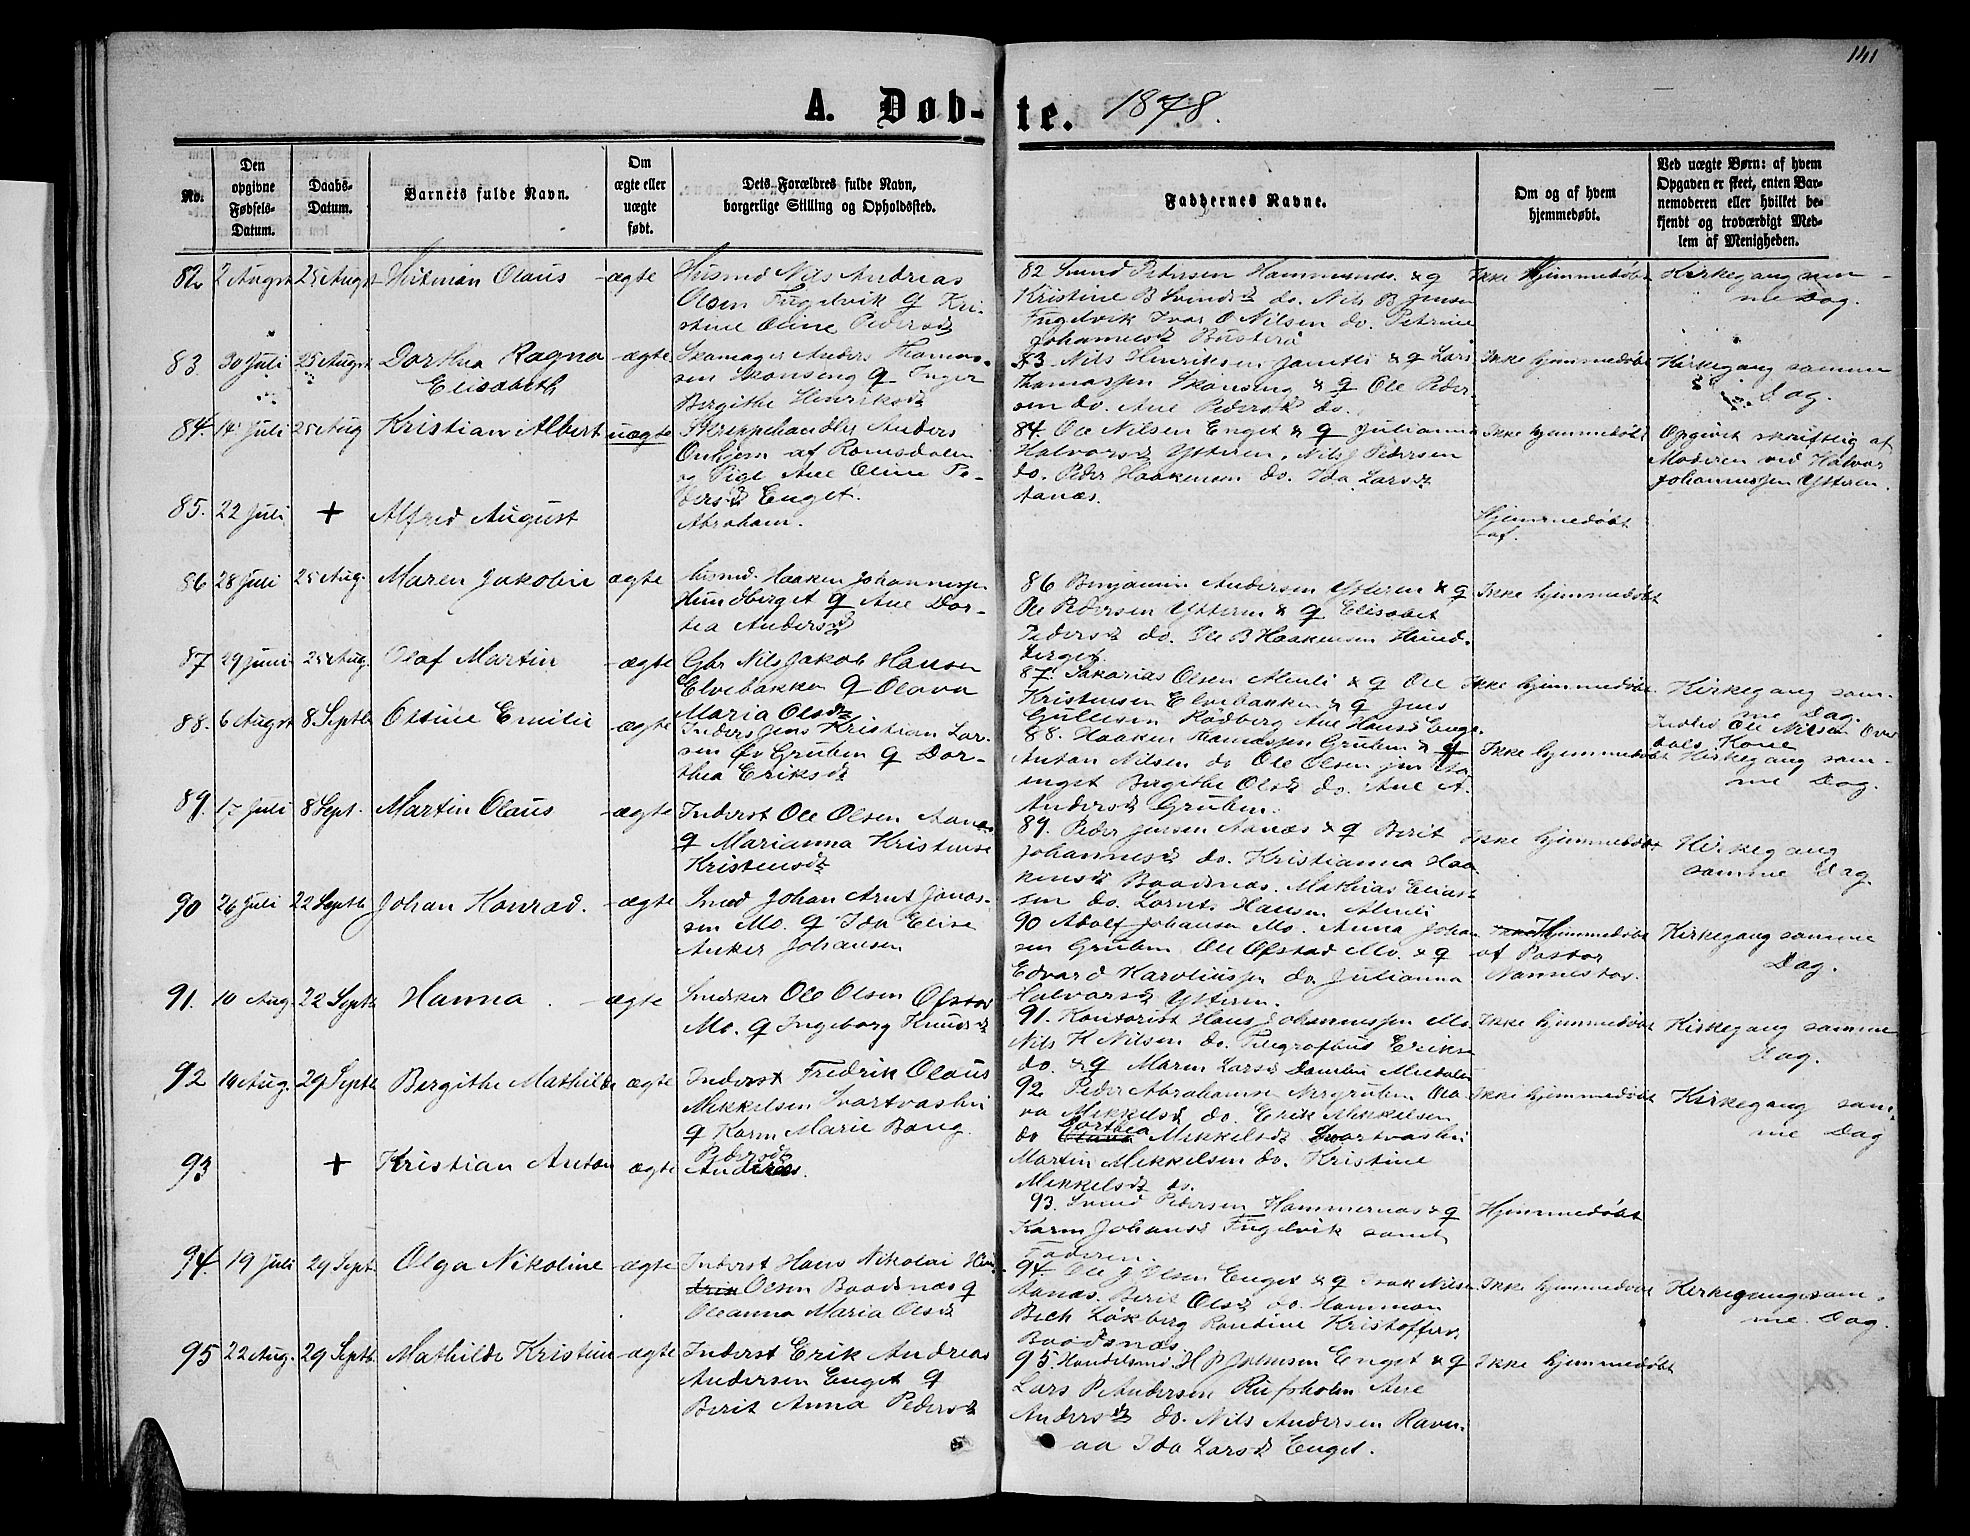 141
A. Døb-te. 1878.
No.
Den opgivne Fødsels-Datum.
Daabs-Datum.
Barnets fulde Navn.
Om ægte eller uægte født.
Dets Forældres fulde Navn, borgerlige Stilling og Opholdssted.
Faddernes Navne.
Om og af hvem hjemmedøbt.
Ved uægte Børn: af hvem Opgaven er skeet, enten Barnemoderen eller hvilket bekjendt og troværdigt Medlem af Menigheden.
82 2 Augst 25 Augst Hitman Olaus ægte Husmd Nils Andreas
Olsen Fugelvik & Kri-
stine Oline Pedersd
82 Svend Pedersen Hammernes & q
Kristine B Svendsd do. Nils B Jensen
Fugelvik Ivar O Nilsen do. Petrine
Johannesd
Ikke hjemmedøbt
Kirkegang sam-
me Dag.
83 30 Juli 25 Augst Dorthea Ragna ægte Skomager Anders Thomas-
Elisabeth
sen Skonseng & Inger
Bergithe Henriksd
83. Nils Henriksen & q Lars
Thomassen Skonseng & q Ole Peder-
sen do. Ane Pedersd do.
Ikke hjemmedøbt
Kirkegang samme
Dag.
84. 14 Juli 25 Aug Kristian Albert uægte Skreppehandler Anders
af Romsdalen
og Pige Ane Oline Pe-
dersd Enget.
84 Ole Nilsen Enget & q Julianna
Halvorsd Ytteren, Nils J Pedersen
do. Peder Haakensen do. Ida Larsd
Aanæs.
Ikke hjemmedøbt
Opgivet skriftlig af
Moderen ved Halvor
Johannessen Ytteren.
85. 22 Juli + Alfred August
Abraham.
Hjemmedøbt
af.
86 28 Juli 25 Aug. Maren Jakobine ægte Husmd. Haaken Johannessen
Hundberget & Ane Dor-
tea Andersd
86 Benjamin Andersen Ytteren & q
Ole Pedersen Ytteren & q Elisabet
Pedersd do. Ole B Haakensen Hund-
berget.
Ikke hjemmedøbt
87 29 Juni 25 Aug. Olaf Martin ægte Gbr Nils Jakob Hansen
Elvebakken & Olava
Maria Olsd
87. Sakarias Olsen & q Ole
Kristensen Elvebakken & q Jens
Gullesen Rødberg Ane Hansd Enget
Ikke hjemmedøbt
Kirkegang sam-
me Dag.
88. 6 Augst 8 Septb Oline Emilie ægte Inders Jens Kristian Lar-
sen Øv Gruben & Dor-
thea Eriksd
88. Haaken Thomassen Gruben & q
Anton Nilsen do Ole Olsen jun
Bergithe Olsd do. Ane A.
Andersd Gruben.
Ikke hjemmedøbt
Ole Nilsen
Kone
Kirkegang sam-
me Dag.
89. 17 Juli 8 Sept. Martin Olaus ægte Inderst Ole Olsen Aanæs
& Marianna Kristense
Kristensd
89. Peder Jensen Aanæs & q Berit
Johannesd do. Kristianna Haa
kensd Baadsnæs. Mathias Elias-
sen do. Lornts Hansen
Ikke hjemmedøbt
Kirkegang
samme Dag.
90 26 Juli 22 Septb Johan Konrad. ægte Smed Johan Arnt Jonas-
sen Mo. & Ida Elise
Anker Johansen
90 Adolf Johansen Mo. Anna Johan
sen Gruben Ole Ofstad Mo. & q
Edvard Karoliussen do Julianna
Halvorsd Ytteren.
Hjemmedøbt
af Pastor
Nannestad.
Kirkegang samme
Dag.
91. 10 Aug. 22 Septb Hanna. ægte Snedker Ole Olsen Ofstad
Mo. & Ingeborg Knudsd
91. Kontorist Hans Johannessen Mo
Nils H Nilsen do. Telegrafbud Eriksen
do. & q Maren Larsd
Ikke hjemmedøbt
Kirkegang samme
Dag.
92 14 Aug. 29 Septb Bergithe Mathilde ægte Inderst Fredrik Olaus
Mikkelsen Svartvashei
& Karen Marie Bang
Pedersd
92 Peder Abrahamsen Nergruben Ola
va Mikkelsd do. Erik Mikkelsen
do Dorthea Mikkelsd Svartvashei
Martin Mikkelsen do. Kristine
Mikkelsd do.
Ikke hjemmedøbt
Kirkegang sam-
me Dag
93 + Kristian Anton ægte Andreas.
93. Svend Pedersen Hammernæs & q
Karen Johansd Fugelvik samt
Faderen.
Hjemmedøbt
94. 19 Juli 29 Sept Olga Nikoline ægte Inderst Hans Nikolai Hen
drik Olsen Baadsnæs &
Oleanna Maria Olsd
94. Ole J Olsen Enget & q Isak Nilsen
Aanæs. Berit Olsd do. Hammon
Bech Løkberg Randine Kristoffers
Baadsnæs
Ikke hjemmedøbt
Kirkegang sam-
me. Dag.
95 22 Aug. 29 Septb. Mathilde Kristine ægte Inderst Erik Andreas
Andersen Enget &
Berit Anna Pedersd
95. Handelsmd. H P Jensen Enget & q
Lars P Andersen Rufsholm Ane
Andersd do. Nils Andersen Ravn-
aa Ida Larsd Enget.
Ikke hjemmedøbt